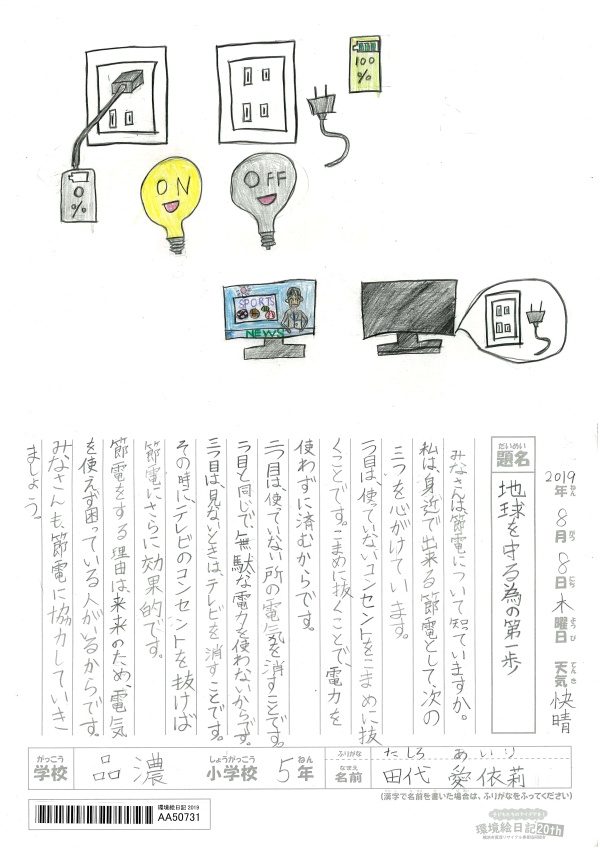 100
%
0
%
ON
OFF
SPORTS
NEWS
2019年 8月 8日 木曜日 天気 快晴
ねん がつ にち ようび てんき
だいめい
題名 地球を守る為の第一歩
みなさんは節電について知ていますか。
私は、身近で出来る節電として、次の
三つを心がけています。
一つ目は、使っていないコンセントをこまめに抜
くことです。こまめに抜くことで、電力を
使わずに済むからです。
二つ目は、使っていない所の電気を消すことです。
一つ目と同じで、無駄な電力を使わないからです。
三つ目は、見ないときは、テレビを消すことです。
その時に、テレビのコンセントを抜けば
節電にさらに効果的です。
節電をする理由は、未来のため、電気
を使えず困っている人がいるからです。
みなさんも、節電に協力していき
ましょう。
がっこう しょうがっこう ねん
学校 品濃 小学校 5年
ふりがな たしろ あいり
なまえ
名前 田代 愛依莉
(漢字で名前を書いた場合は、ふりがなをふってください)
環境絵日記 2019
AA50731
環境絵日記20th